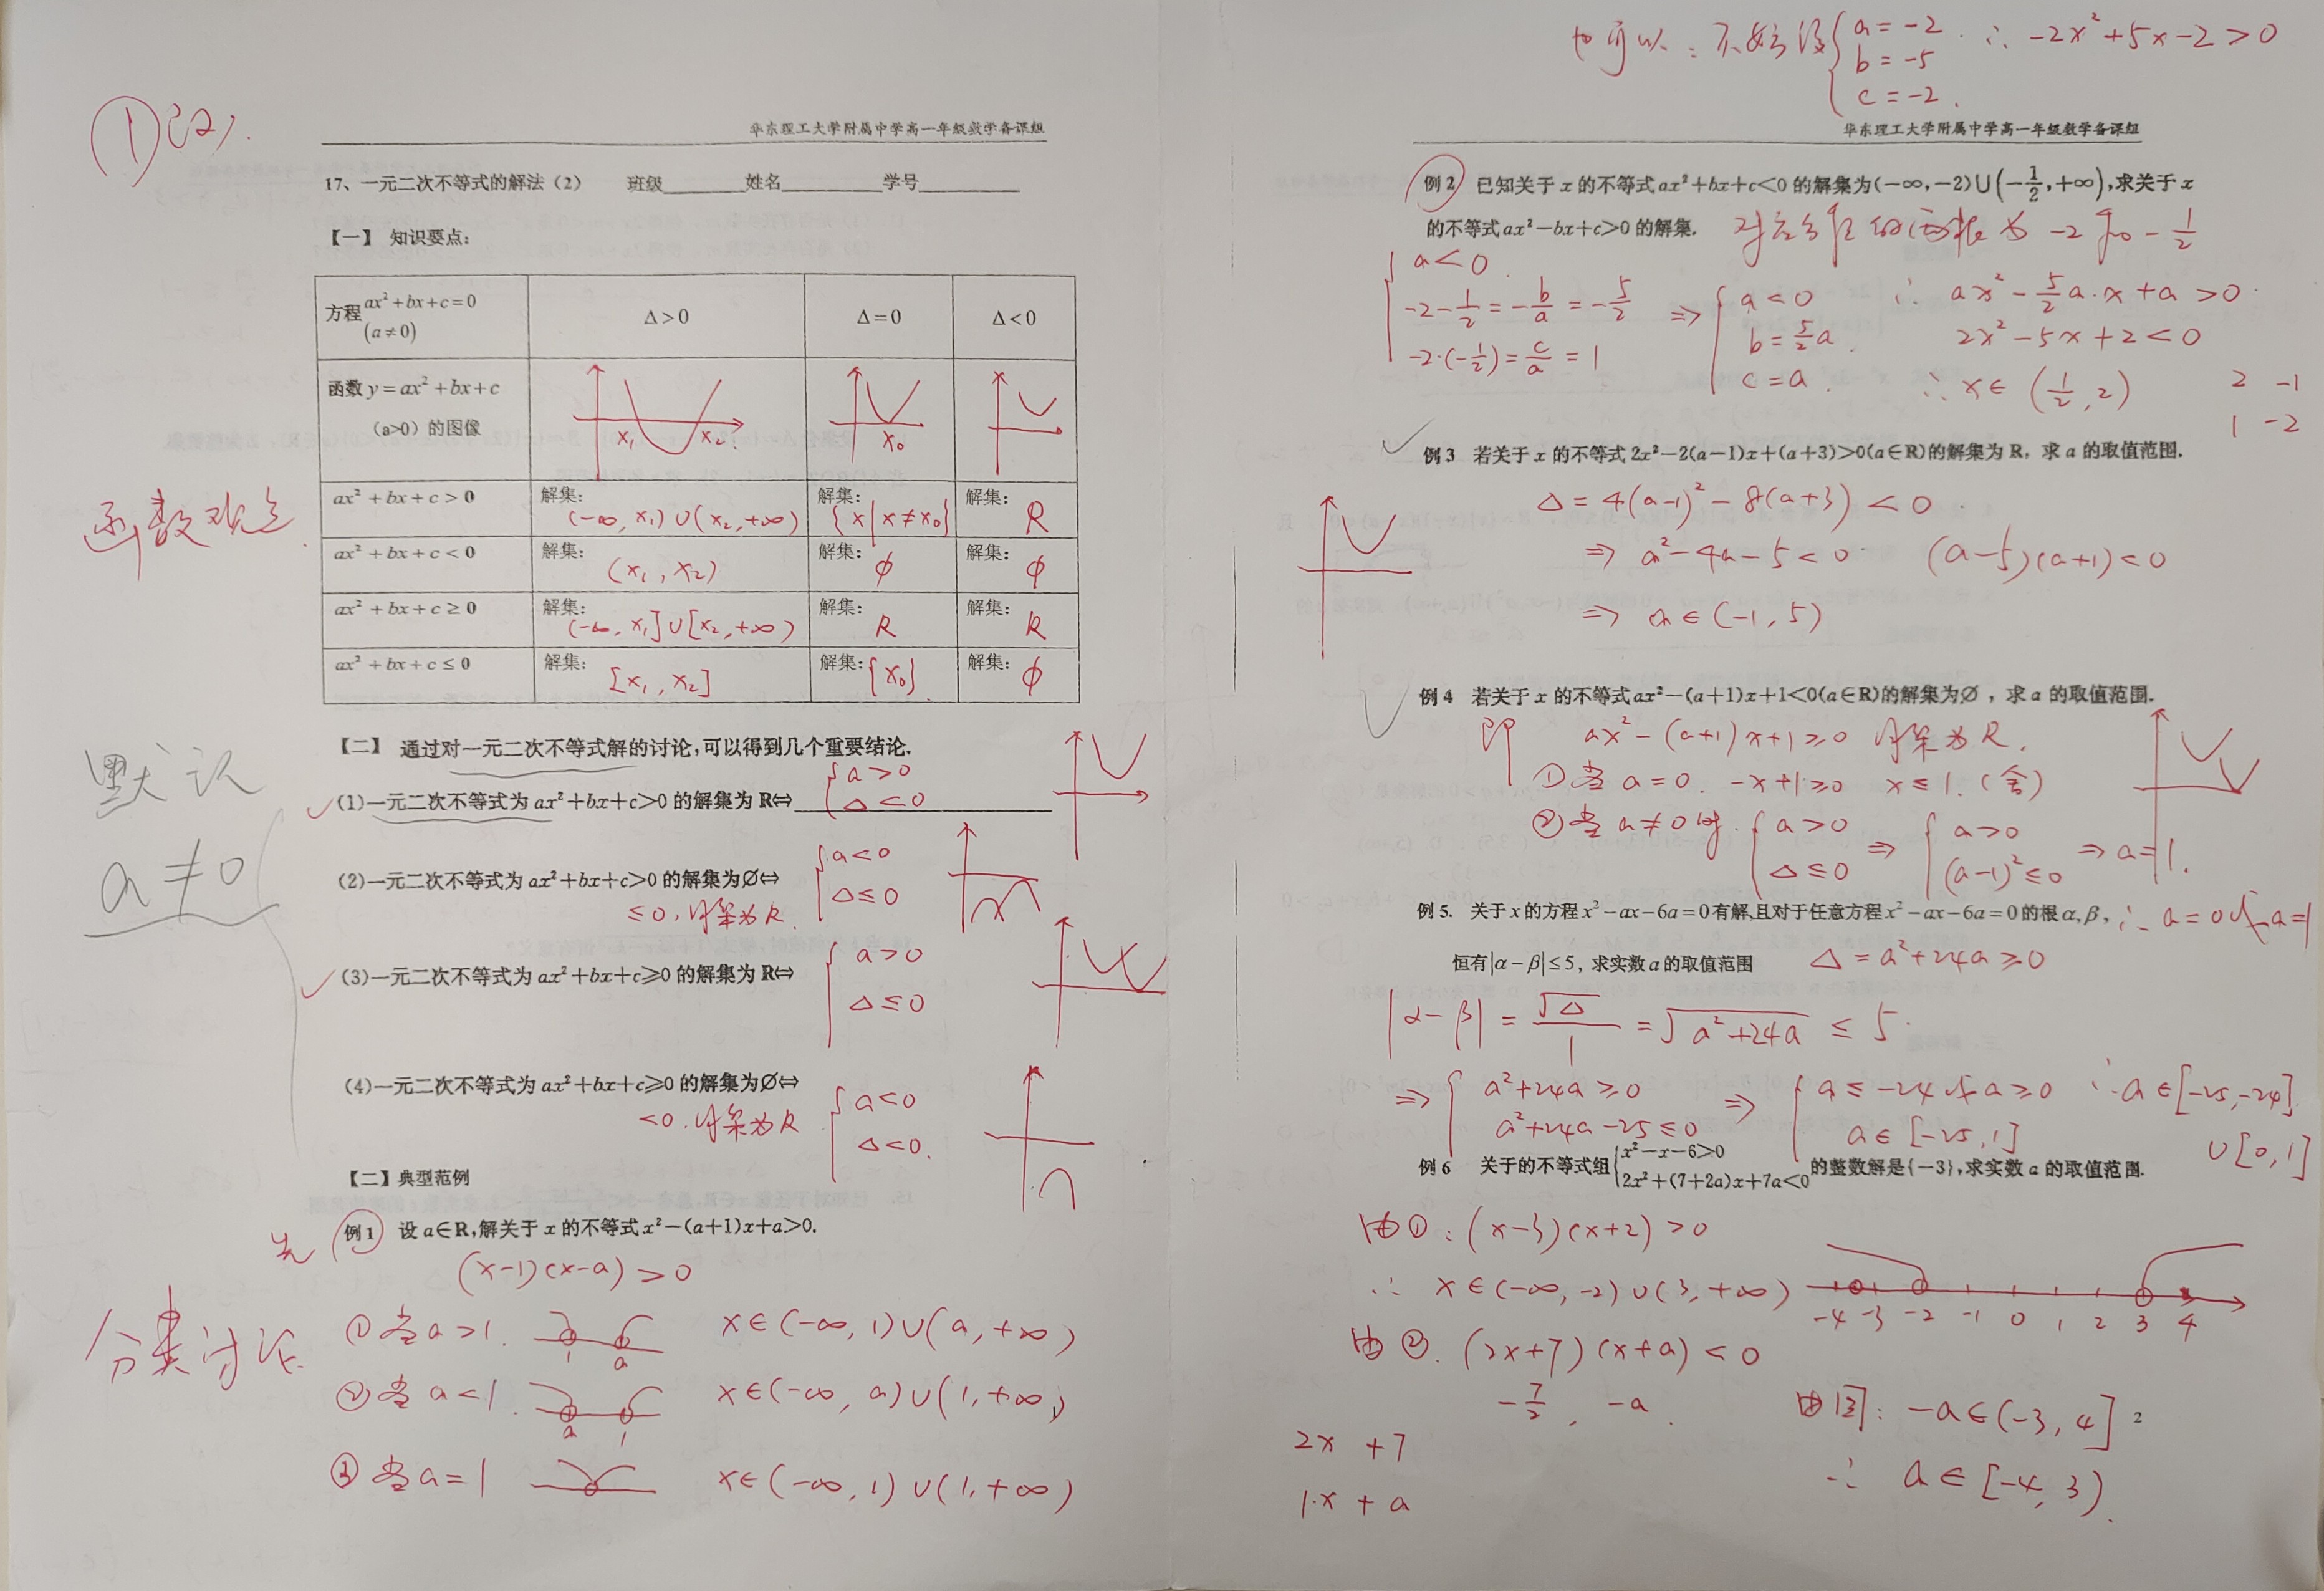 ①(2).
华东理工大学附属中学高一年级数学备课组
17、一元二次不等式的解法（2） 班级________姓名__________学号__________
【一】 知识要点:
方程 ax²+bx+c=0 (a≠0) Δ>0 Δ=0 Δ<0
函数 y=ax²+bx+c （a>0）的图像 x₁ x₂ x₀
函数观点
ax²+bx+c>0 解集: (-∞, x₁)∪(x₂,+∞) 解集: {x|x≠x₀} 解集: R
ax²+bx+c<0 解集: (x₁, x₂) 解集: ϕ 解集: ϕ
ax²+bx+c≥0 解集: (-∞, x₁]∪[x₂,+∞) 解集: R 解集: R
ax²+bx+c≤0 解集: [x₁, x₂] 解集: {x₀}. 解集: ϕ
【二】 通过对一元二次不等式解的讨论,可以得到几个重要结论.
默认
a≠0
✓(1)一元二次不等式为 ax²+bx+c>0 的解集为 R⇔ {a>0 Δ<0
(2)一元二次不等式为 ax²+bx+c>0 的解集为∅⇔ {a<0 Δ≤0
≤0, 解集为R
✓(3)一元二次不等式为 ax²+bx+c≥0 的解集为 R⇔ {a>0 Δ≤0
(4)一元二次不等式为 ax²+bx+c≥0 的解集为∅⇔ {a<0 Δ<0.
<0. 解集为R
【二】典型范例
先 例1 设 a∈R,解关于 x 的不等式 x²-(a+1)x+a>0.
(x-1)(x-a)>0
分类讨论.
①当a>1. 1 a x∈(-∞, 1)∪(a,+∞)
②当a<1. a 1 x∈(-∞, a)∪(1,+∞)
③当a=1 x∈(-∞, 1)∪(1,+∞)
也可以: 不妨设 {a=-2 b=-5 c=-2. ∴ -2x²+5x-2>0
华东理工大学附属中学高一年级数学备课组
例2 已知关于 x 的不等式 ax²+bx+c<0 的解集为(-∞,-2)∪(-1/2,+∞),求关于 x
的不等式 ax²-bx+c>0 的解集. 对应方程的两根为 -2和-1/2
{a<0. -2-1/2=-b/a=-5/2 -2·(-1/2)=c/a=1 ⇒ {a<0 b=5/2a. c=a.
∴ ax²-5/2a·x+a>0.
2x²-5x+2<0
∴ x∈(1/2, 2)
2 -1
1 -2
✓例3 若关于 x 的不等式 2x²-2(a-1)x+(a+3)>0(a∈R)的解集为 R, 求 a 的取值范围.
Δ=4(a-1)²-8(a+3)<0.
⇒ a²-4a-5<0 (a-5)(a+1)<0
⇒ a∈(-1, 5)
✓例4 若关于 x 的不等式 ax²-(a+1)x+1<0(a∈R)的解集为∅ , 求 a 的取值范围.
即 ax²-(a+1)x+1≥0 解集为R.
①当 a=0. -x+1≥0 x≤1. (舍)
②当 a≠0时. {a>0 Δ≤0 ⇒ {a>0 (a-1)²≤0 ⇒ a=1.
例5. 关于 x 的方程 x²-ax-6a=0 有解,且对于任意方程 x²-ax-6a=0 的根 α,β, ∴ a=0或a=1
恒有|α-β|≤5, 求实数 a 的取值范围 Δ=a²+24a≥0
|α-β|=√Δ/1=√a²+24a ≤ 5.
⇒ {a²+24a≥0 a²+24a-25≤0 ⇒ {a≤-24或a≥0 a∈[-25,1] ∴a∈[-25,-24]
∪[0,1]
例6 关于的不等式组{x²-x-6>0 2x²+(7+2a)x+7a<0 的整数解是{-3},求实数 a 的取值范围.
由①: (x-3)(x+2)>0
∴ x∈(-∞, -2)∪(3,+∞) -4 -3 -2 -1 0 1 2 3 4
由②. (2x+7)(x+a)<0
-7/2, -a.
由图: -a∈(-3, 4] 2
2x +7
1·x + a
∴ a∈[-4, 3).